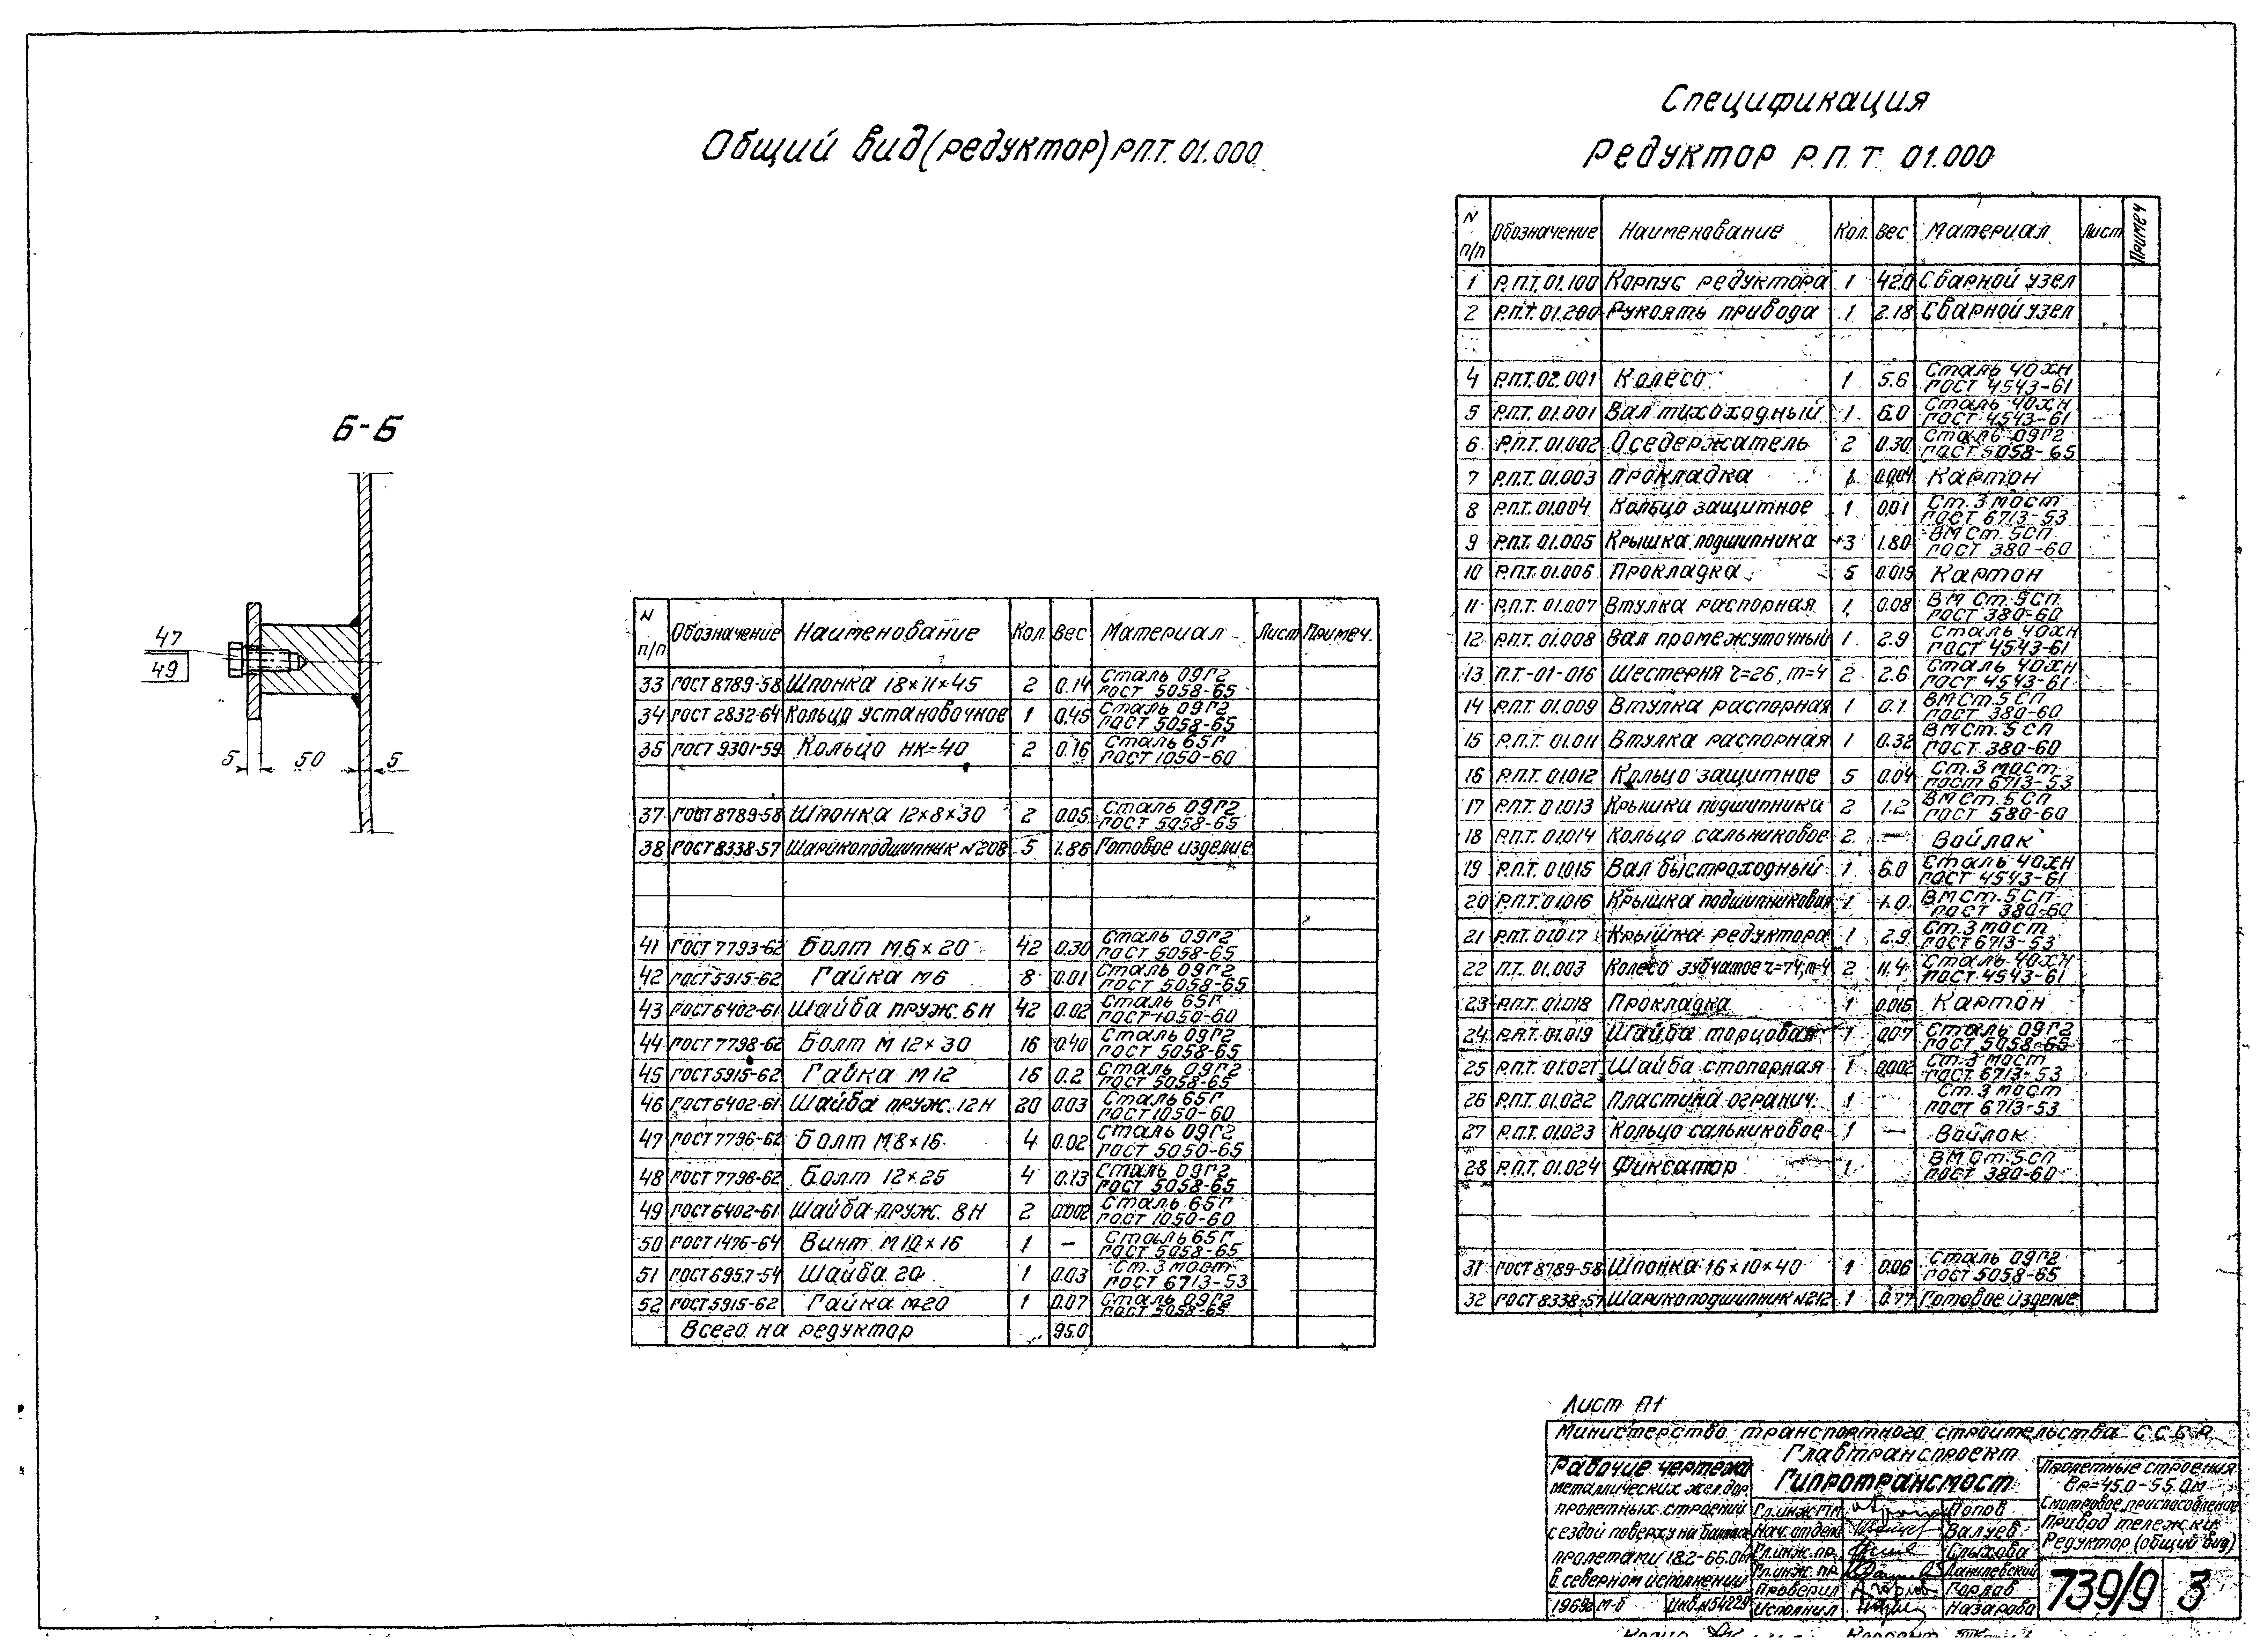 Общий вид (редуктор) Р.П.Т. 01.000
Спецификация
Редуктор Р.П.Т. 01.000
Б-Б
47
49
5 50 5
N п/п Обозначение Наименование Кол. Вес Материал Лист Примеч
1 Р.П.Т. 01.100 Корпус редуктора 1 42.0 Сварной узел
2 Р.П.Т. 01.200 Рукоять привода 1 2.18 Сварной узел
4 Р.П.Т. 02.001 Колесо 1 5.6 Сталь 40ХН ГОСТ 4543-61
5 Р.П.Т. 01.001 Вал тихоходный 1 6.0 Сталь 40ХН ГОСТ 4543-61
6 Р.П.Т. 01.002 Оседержатель 2 0.30 Сталь 09Г2 ГОСТ 5058-65
7 Р.П.Т. 01.003 Прокладка 1 0.004 Картон
8 Р.П.Т. 01.004 Кольцо защитное 1 0.01 Ст. 3 мост ГОСТ 6713-53
9 Р.П.Т. 01.005 Крышка подшипника 3 1.80 ВМ Ст. 5сп ГОСТ 380-60
10 Р.П.Т. 01.006 Прокладка 5 0.019 Картон
11 Р.П.Т. 01.007 Втулка распорная 1 0.08 ВМ Ст. 5сп ГОСТ 380-60
12 Р.П.Т. 01.008 Вал промежуточный 1 2.9 Сталь 40ХН ГОСТ 4543-61
13 П.Т-01-016 Шестерня z=26, m=4 2 2.6 Сталь 40ХН ГОСТ 4543-61
14 Р.П.Т. 01.009 Втулка распорная 1 0.1 ВМ Ст. 5 сп ГОСТ 380-60
15 Р.П.Т. 01.011 Втулка распорная 1 0.32 ВМ Ст. 5 сп ГОСТ 380-60
16 Р.П.Т. 01.012 Кольцо защитное 5 0.04 Ст. 3 мост ГОСТ 6713-53
17 Р.П.Т. 01.013 Крышка подшипника 2 1.2 ВМ Ст. 5 сп ГОСТ 580-60
18 Р.П.Т. 01.014 Кольцо сальниковое 2 — Войлок
19 Р.П.Т. 01.015 Вал быстроходный 1 6.0 Сталь 40ХН ГОСТ 4543-61
20 Р.П.Т. 01.016 Крышка подшипниковая 1 1.0 ВМ Ст. 5сп ГОСТ 380-60
21 Р.П.Т. 01.017 Крышка редуктора 1 2.9 Ст. 3 мост ГОСТ 6713-53
22 П.Т. 01.003 Колесо зубчатое z=74, m=4 2 11.4 Сталь 40ХН ГОСТ 4543-61
23 Р.П.Т. 01.018 Прокладка 1 0.015 Картон
24 Р.П.Т. 01.019 Шайба торцовая 1 0.07 Сталь 09Г2 ГОСТ 5058-65
25 Р.П.Т. 01.021 Шайба стопорная 1 0.002 Ст. 3 мост ГОСТ 6713-53
26 Р.П.Т. 01.022 Пластина огранич. 1 Ст. 3 мост ГОСТ 6713-53
27 Р.П.Т. 01.023 Кольцо сальниковое 1 — Войлок
28 Р.П.Т. 01.024 Фиксатор 1 ВМ Ст. 5сп ГОСТ 380-60
31 ГОСТ 8789-58 Шпонка 16×10×40 1 0.06 Сталь 09Г2 ГОСТ 5058-65
32 ГОСТ 8338-57 Шарикоподшипник N212 1 0.77 Готовое изделие
N п/п Обозначение Наименование Кол Вес Материал Лист Примеч.
33 ГОСТ 8789-58 Шпонка 18×11×45 2 0.14 Сталь 09Г2 ГОСТ 5058-65
34 ГОСТ 2832-64 Кольцо установочное 1 0.45 Сталь 09Г2 ГОСТ 5058-65
35 ГОСТ 9301-59 Кольцо НК-40 2 0.16 Сталь 65Г ГОСТ 1050-60
37 ГОСТ 8789-58 Шпонка 12×8×30 2 0.05 Сталь 09Г2 ГОСТ 5058-65
38 ГОСТ 8338-57 Шарикоподшипник N208 5 1.86 Готовое изделие
41 ГОСТ 7793-62 Болт М6×20 42 0.30 Сталь 09Г2 ГОСТ 5058-65
42 ГОСТ 5915-62 Гайка М6 8 0.01 Сталь 09Г2 ГОСТ 5058-65
43 ГОСТ 6402-61 Шайба пруж. 6Н 42 0.02 Сталь 65Г ГОСТ 1050-60
44 ГОСТ 7798-62 Болт М 12×30 16 0.40 Сталь 09Г2 ГОСТ 5058-65
45 ГОСТ 5915-62 Гайка М12 16 0.2 Сталь 09Г2 ГОСТ 5058-65
46 ГОСТ 6402-61 Шайба пруж. 12Н 20 0.03 Сталь 65Г ГОСТ 1050-60
47 ГОСТ 7796-62 Болт М8×16 4 0.02 Сталь 09Г2 ГОСТ 5050-65
48 ГОСТ 7796-62 Болт 12×25 4 0.13 Сталь 09Г2 ГОСТ 5058-65
49 ГОСТ 6402-61 Шайба пруж. 8Н 2 0.002 Сталь 65Г ГОСТ 1050-60
50 ГОСТ 1476-64 Винт М10×16 1 — Сталь 65Г ГОСТ 5058-65
51 ГОСТ 6957-54 Шайба 20 1 0.03 Ст. 3 мост ГОСТ 6713-53
52 ГОСТ 5915-62 Гайка М20 1 0.07 Сталь 09Г2 ГОСТ 5058-65
Всего на редуктор 95.0
Лист П1
Министерство транспортного строительства СССР
Главтранспроект
Гипротрансмост
Рабочие чертежи
металлических жел.дор.
пролетных строений
с ездой поверху на балласте
пролетами 18.2-66.0м
в северном исполнении
1969г М-б Инв.N54229
Гл.инж.ГТМ Попов
Нач. отдела Валуев
Гл.инж.пр. Слыхова
Гл.инж.пр. Данилевский
Проверил Горлов
Исполнил Назарова
Пролетные строения
ℓр=45.0-55.0м
Смотровое приспособление
Привод тележки
Редуктор (общий вид)
739/9 3